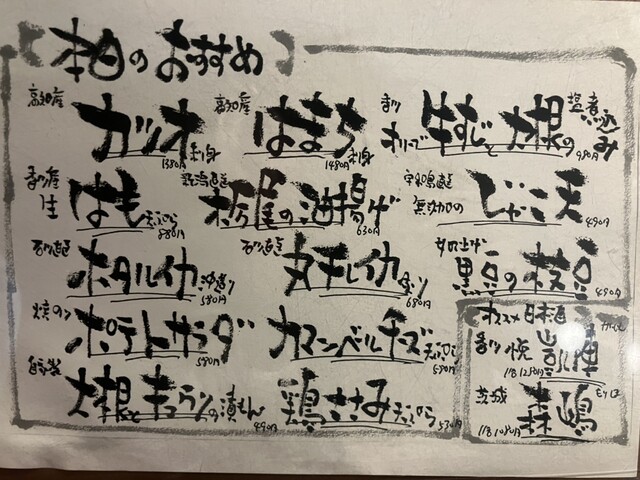 本日のおすすめ
高知産 カツオ 刺身 1380円
高知産 はまち 刺身 1480円
香川 オリーブ 牛すじと大根の塩煮込み 980円
香川産 生 はも 天ぷら 880円
新潟直送 栃尾の油揚げ 630円
宇和島直送 無添加の じゃこ天 490円
石川直送 ホタルイカ 沖漬け 580円
石川直送 丸干しイカ 炙り 680円
黒豆の枝豆 490円
燻のポテトサラダ 580円
カマンベールチーズ 天ぷら 580円
自家製 大根とキュウリの漬もん 490円
鶏ささみ 天ぷら 530円
オススメ日本酒
香川 悦凱陣 1合1280円
茨城 森嶋 1合1080円